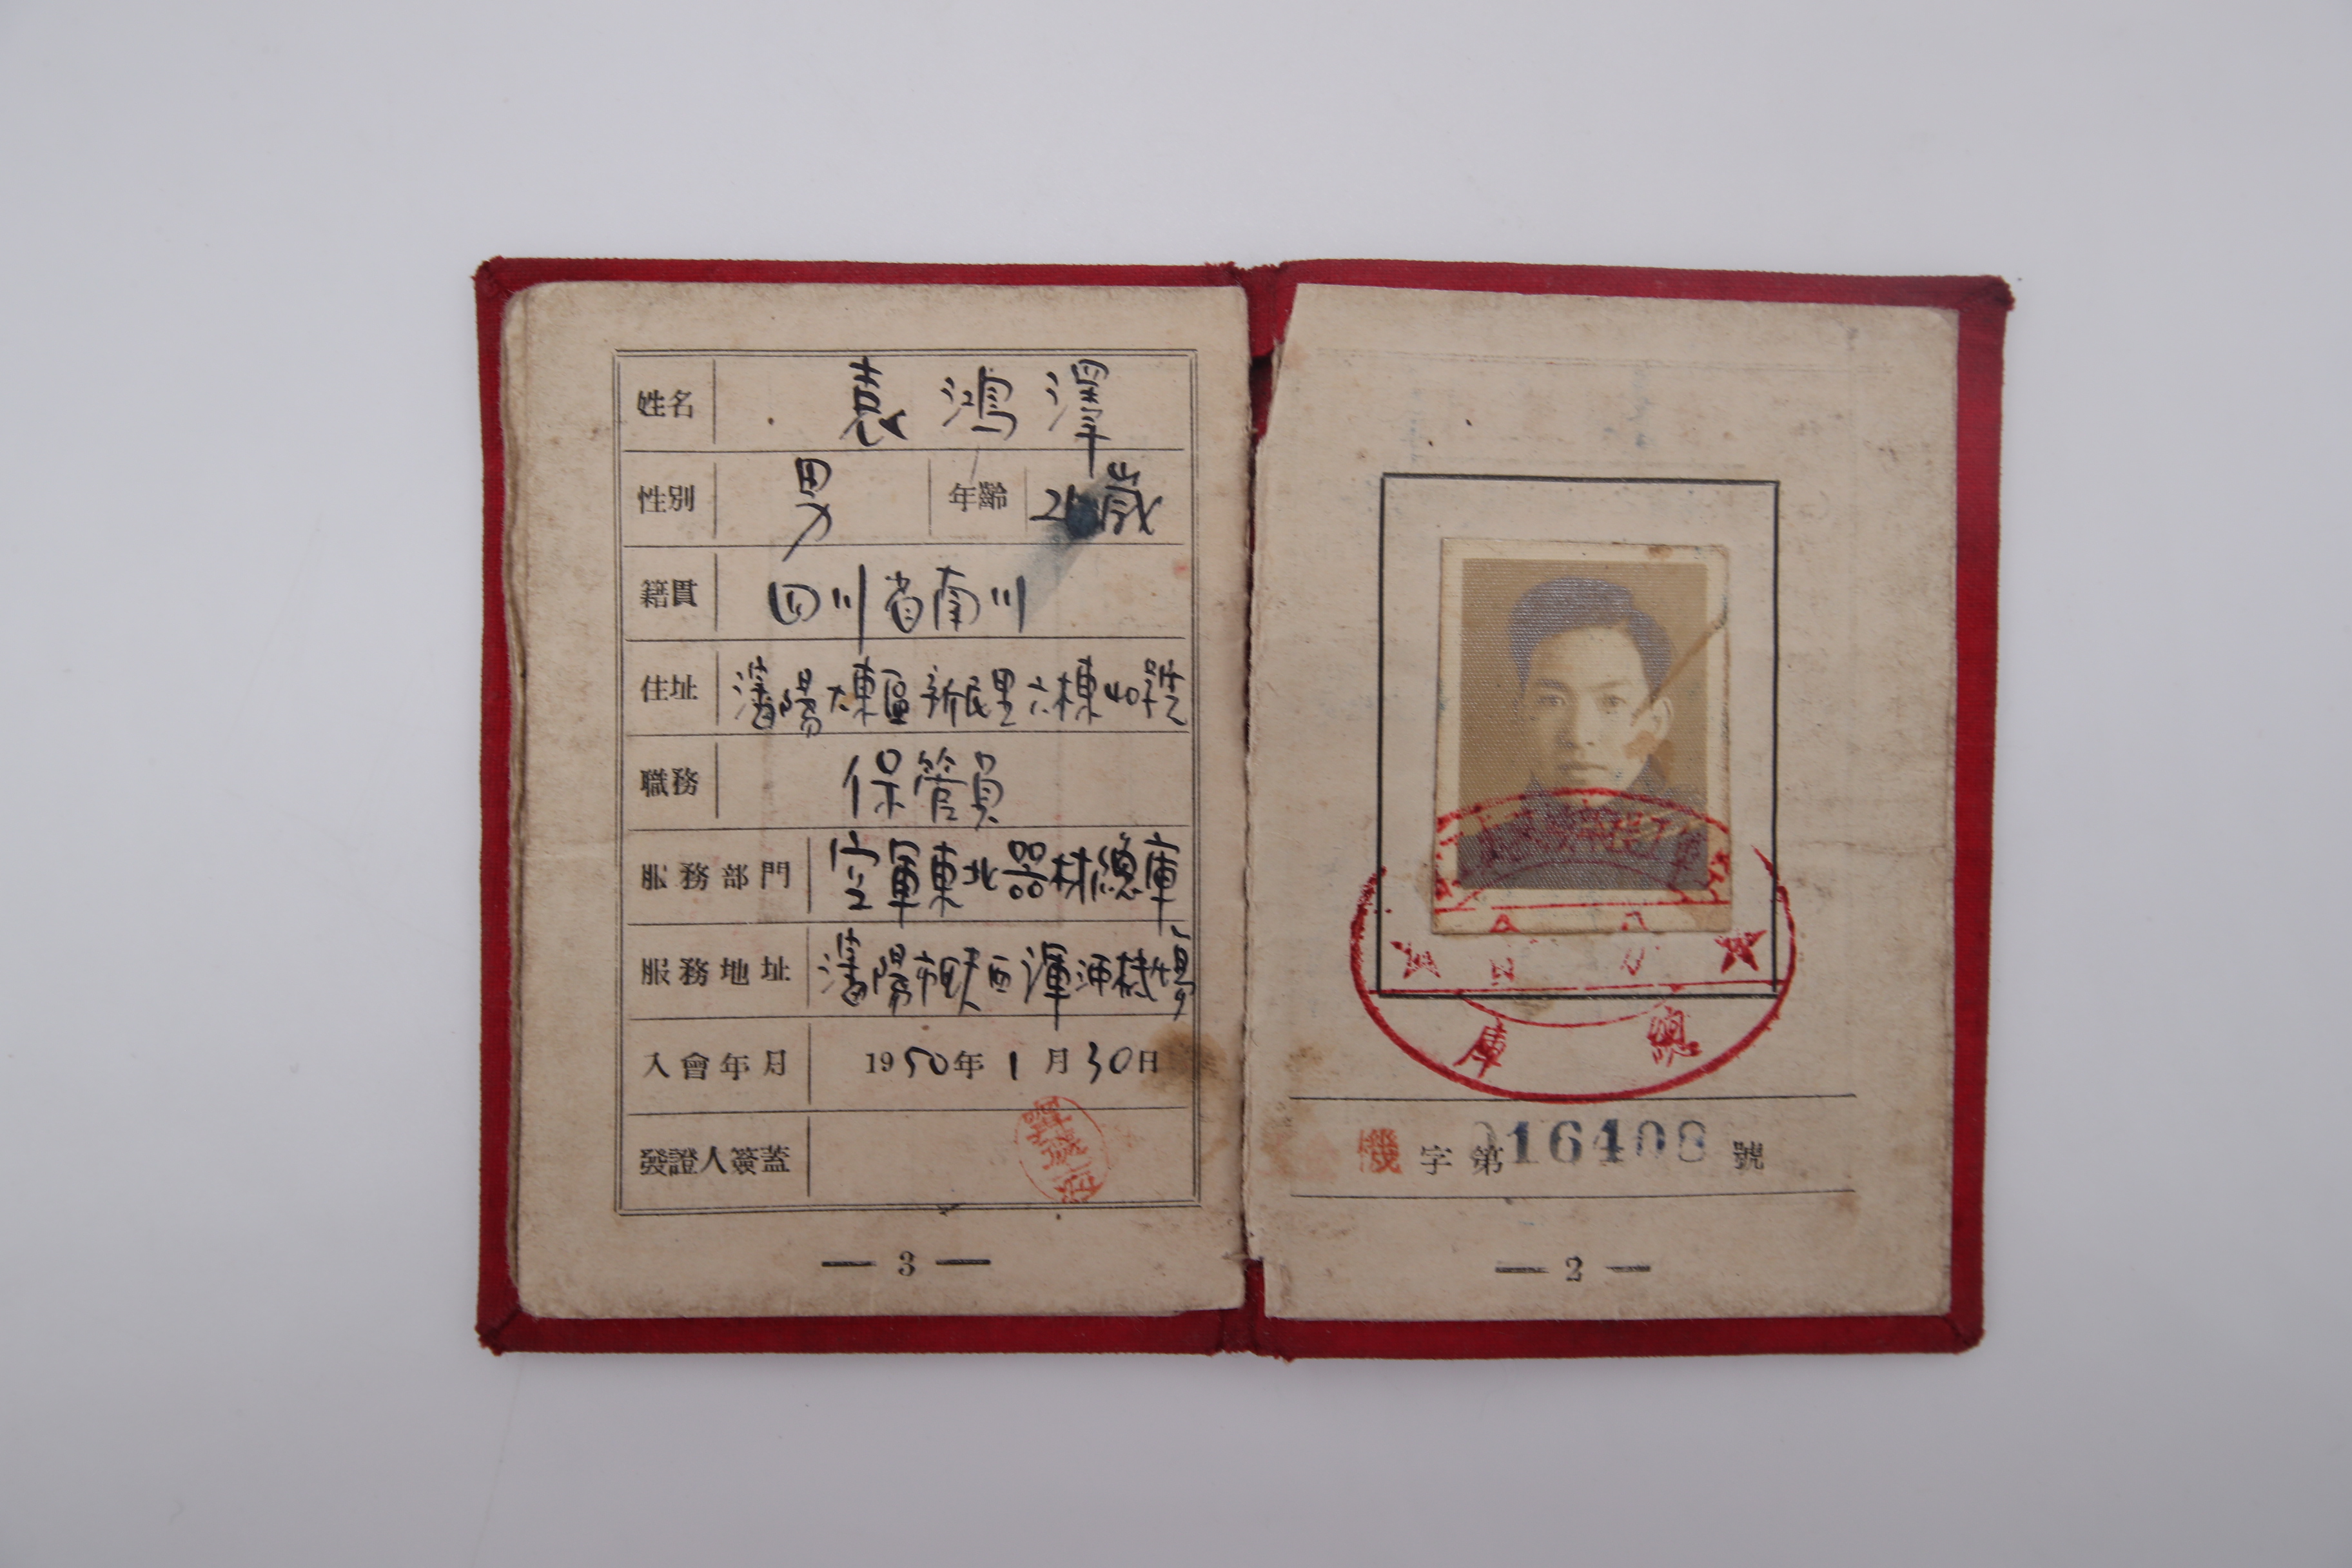 姓名 袁鴻澤
性別 男 年齡 2 歲
籍貫 四川省南川
住址 瀋陽大東區新民里六棟40號
職務 保管員
服務部門 空軍東北器材總庫
服務地址 瀋陽市鉄西渾河機場
入會年月 1950年1月30日
發證人簽蓋
— 3 —
總
庫
機字第016408號
— 2 —